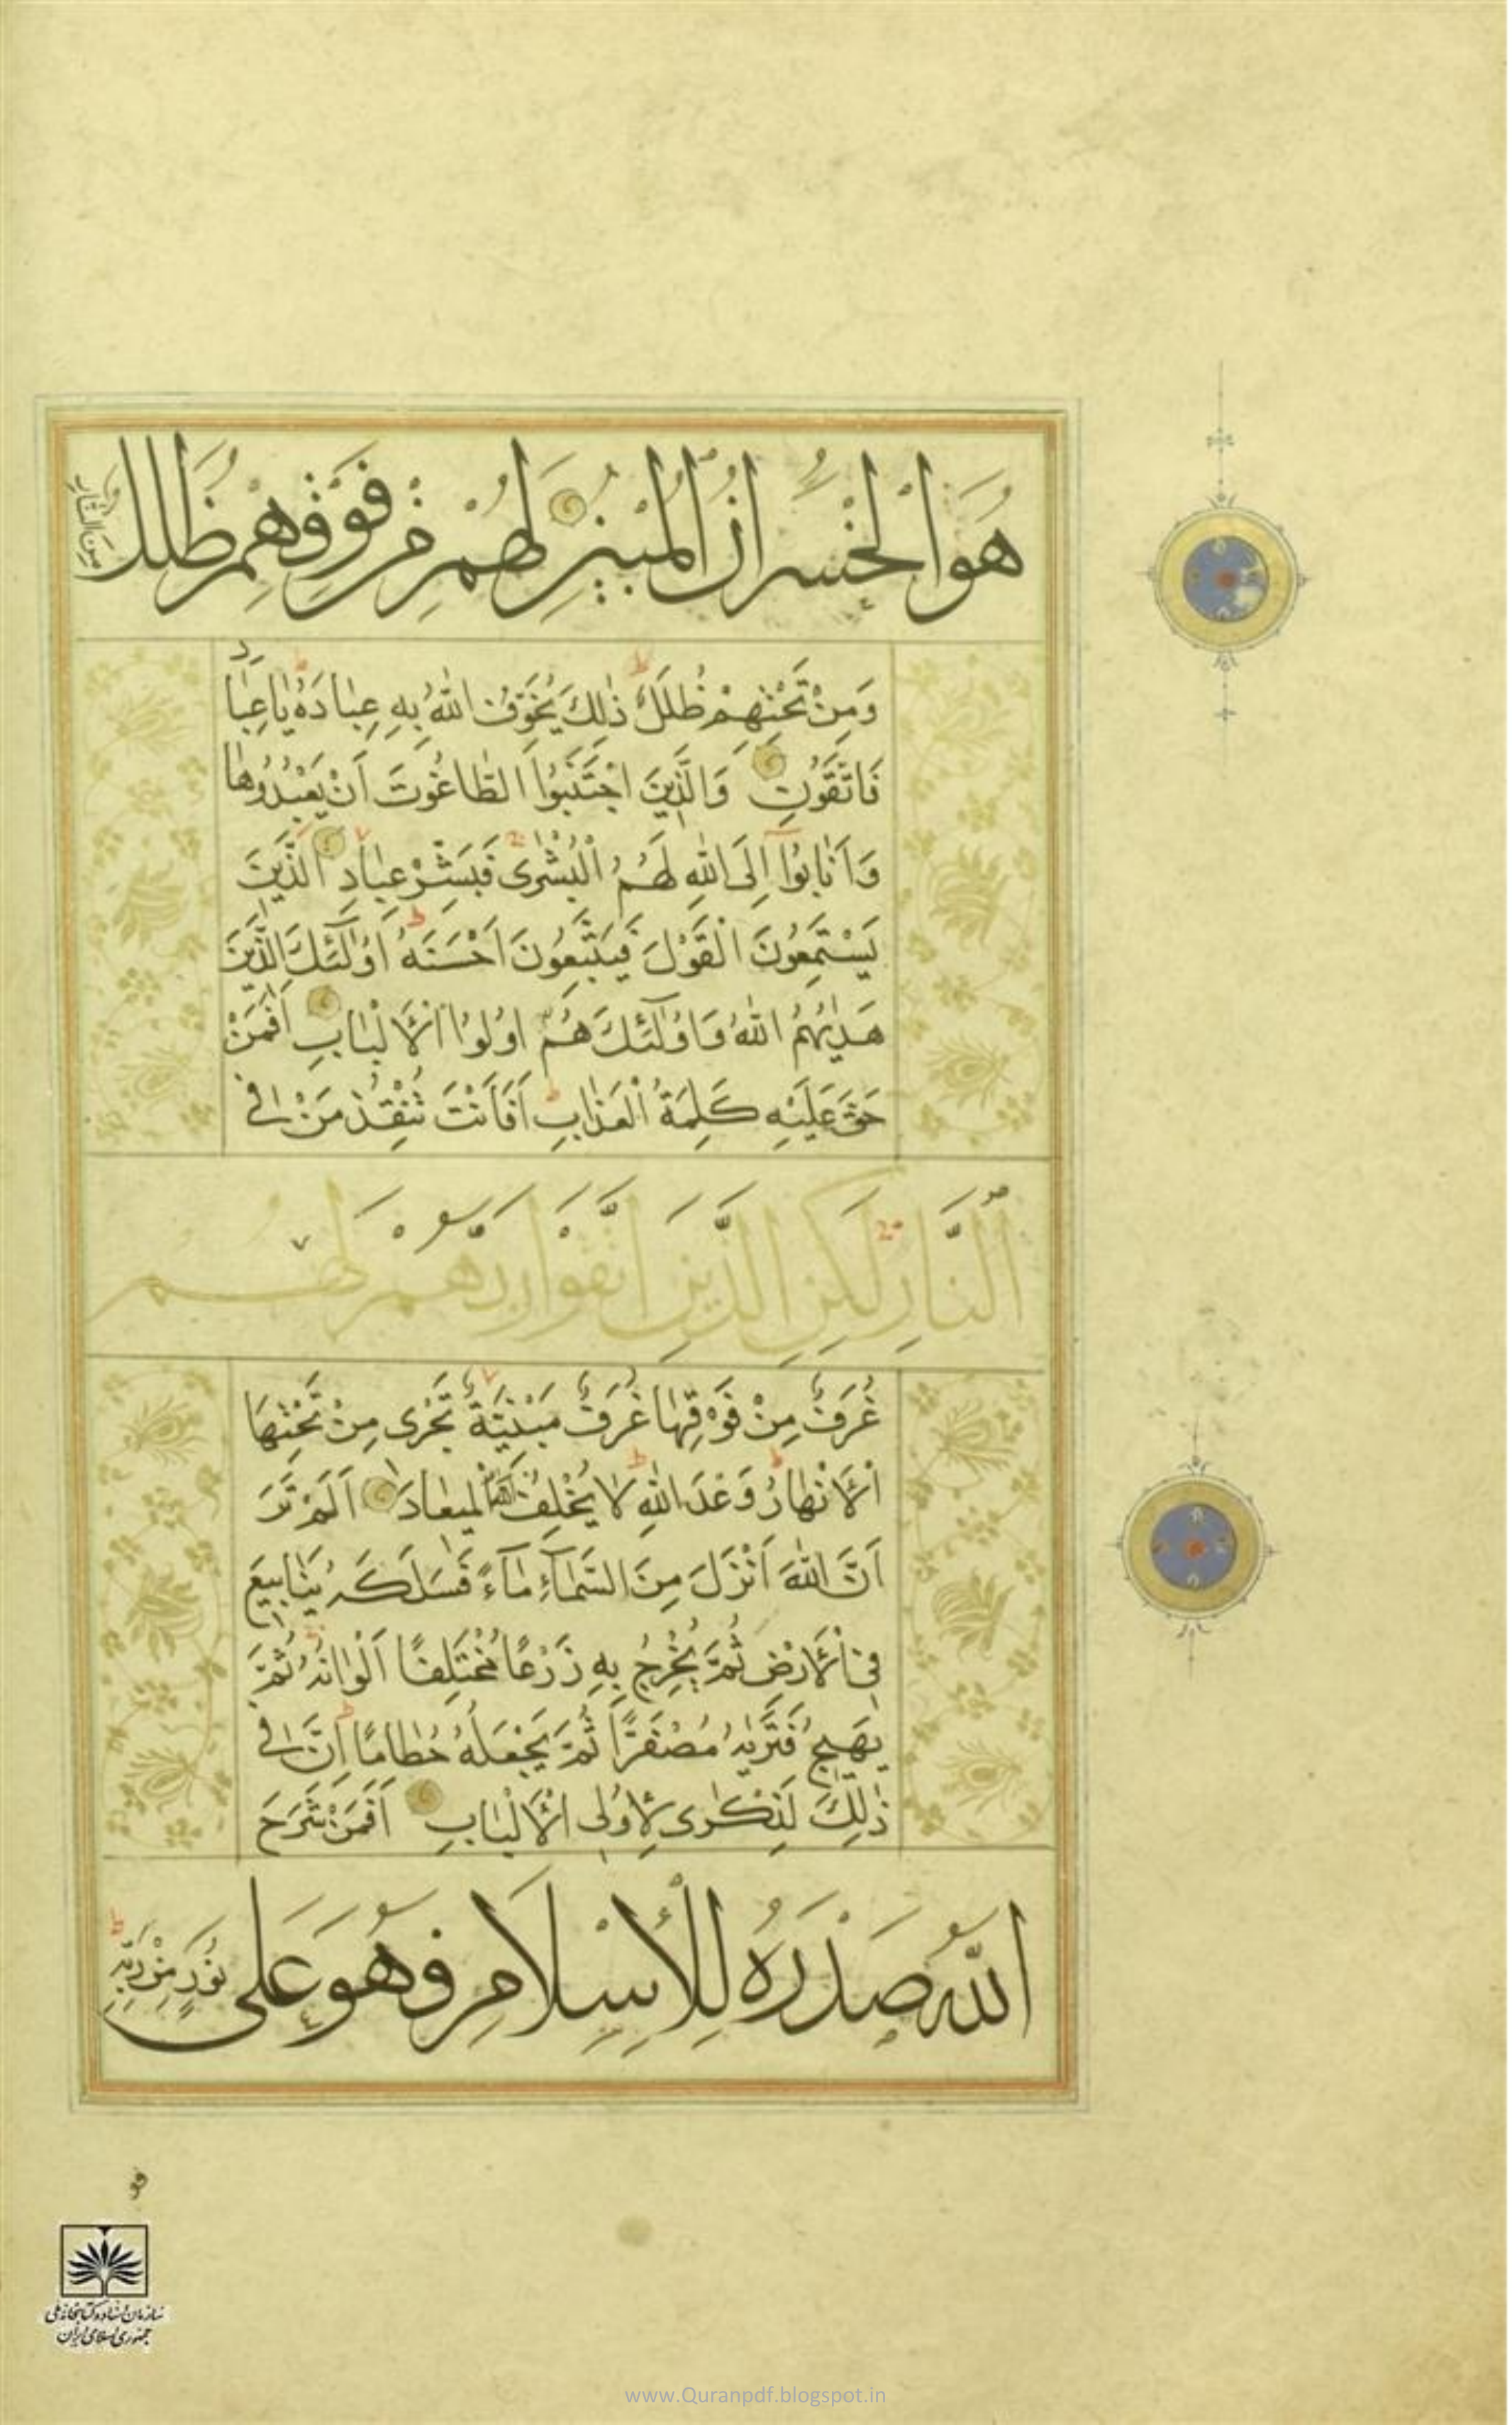 هُوَ الْخُسْرَانُ الْمُبِينُ لَهُمْ مِنْ فَوْقِهِمْ ظُلَلٌ مِنَ النَّارِ
وَمِنْ تَحْتِهِمْ ظُلَلٌ ذٰلِكَ يُخَوِّفُ اللّٰهُ بِهِ عِبَادَهُ يَا عِبَادِ
فَاتَّقُونِ وَالَّذِينَ اجْتَنَبُوا الطَّاغُوتَ اَنْ يَعْبُدُوهَا
وَاَنَابُوا اِلَى اللّٰهِ لَهُمُ الْبُشْرٰى فَبَشِّرْ عِبَادِ الَّذِينَ
يَسْتَمِعُونَ الْقَوْلَ فَيَتَّبِعُونَ اَحْسَنَهُ اُولٰٓئِكَ الَّذِينَ
هَدٰيهُمُ اللّٰهُ وَاُولٰٓئِكَ هُمْ اُولُوا الْاَلْبَابِ اَفَمَنْ
حَقَّ عَلَيْهِ كَلِمَةُ الْعَذَابِ اَفَاَنْتَ تُنْقِذُ مَنْ فِي
النَّارِ لٰكِنِ الَّذِينَ اتَّقَوْا رَبَّهُمْ لَهُمْ
غُرَفٌ مِنْ فَوْقِهَا غُرَفٌ مَبْنِيَّةٌ تَجْرِى مِنْ تَحْتِهَا
الْاَنْهَارُ وَعْدَ اللّٰهِ لَا يُخْلِفُ اللّٰهُ الْمِيعَادَ اَلَمْ تَرَ
اَنَّ اللّٰهَ اَنْزَلَ مِنَ السَّمَآءِ مَآءً فَسَلَكَهُ يَنَابِيعَ
فِي الْاَرْضِ ثُمَّ يُخْرِجُ بِهِ زَرْعًا مُخْتَلِفًا اَلْوَانُهُ ثُمَّ
يَهِيجُ فَتَرٰيهُ مُصْفَرًّا ثُمَّ يَجْعَلُهُ حُطَامًا اِنَّ فِي
ذٰلِكَ لَذِكْرٰى لِاُولِى الْاَلْبَابِ اَفَمَنْ شَرَحَ
اللّٰهُ صَدْرَهُ لِلْاِسْلَامِ فَهُوَ عَلٰى نُورٍ مِنْ رَبِّهِ
سازمان اسناد و کتابخانه ملی
جمهوری اسلامی ایران
www.Quranpdf.blogspot.in